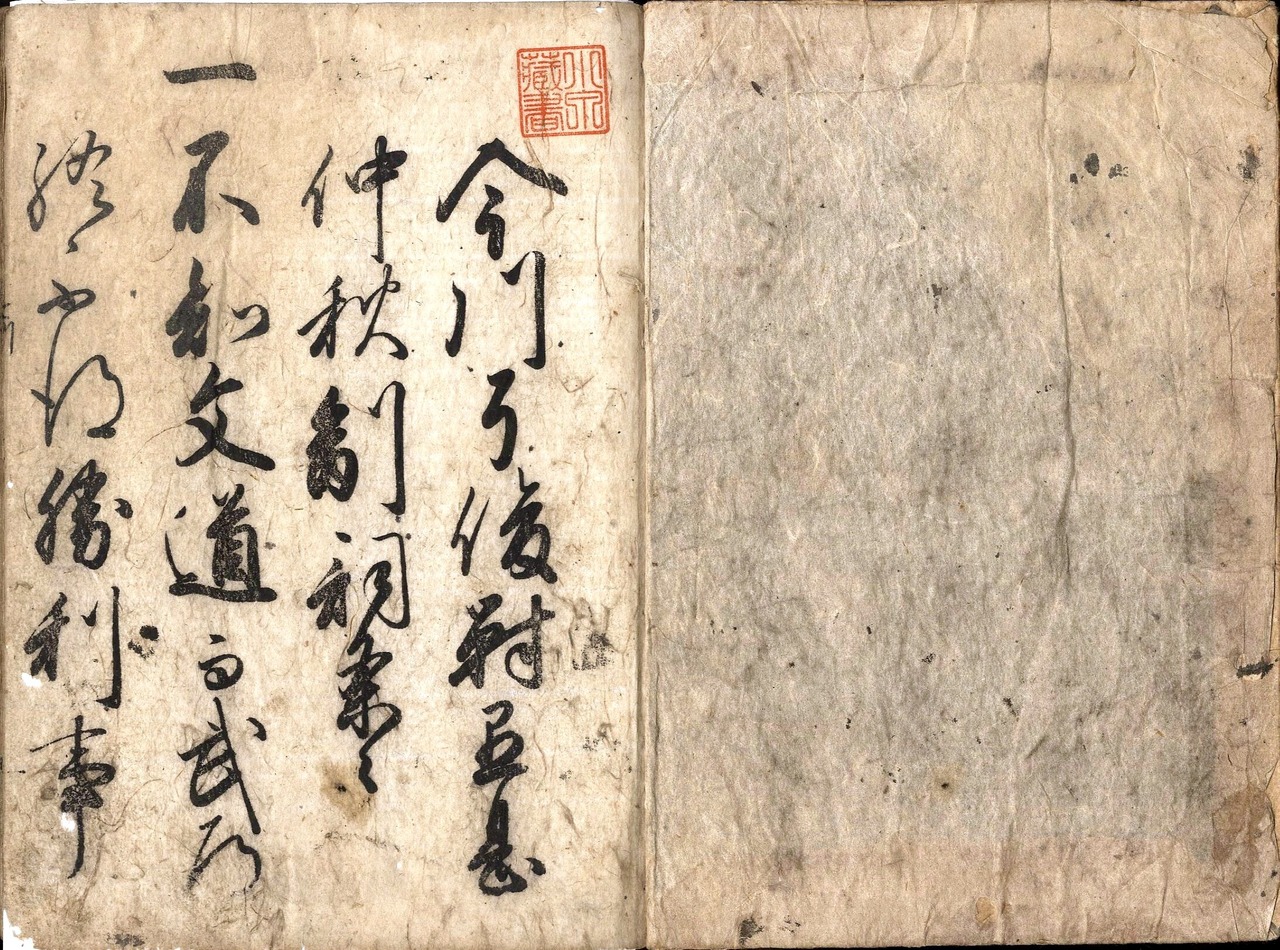 小泉藏書
今川了俊對愚息
仲秋制詞条々
一不知文道而武道
終不得勝利事